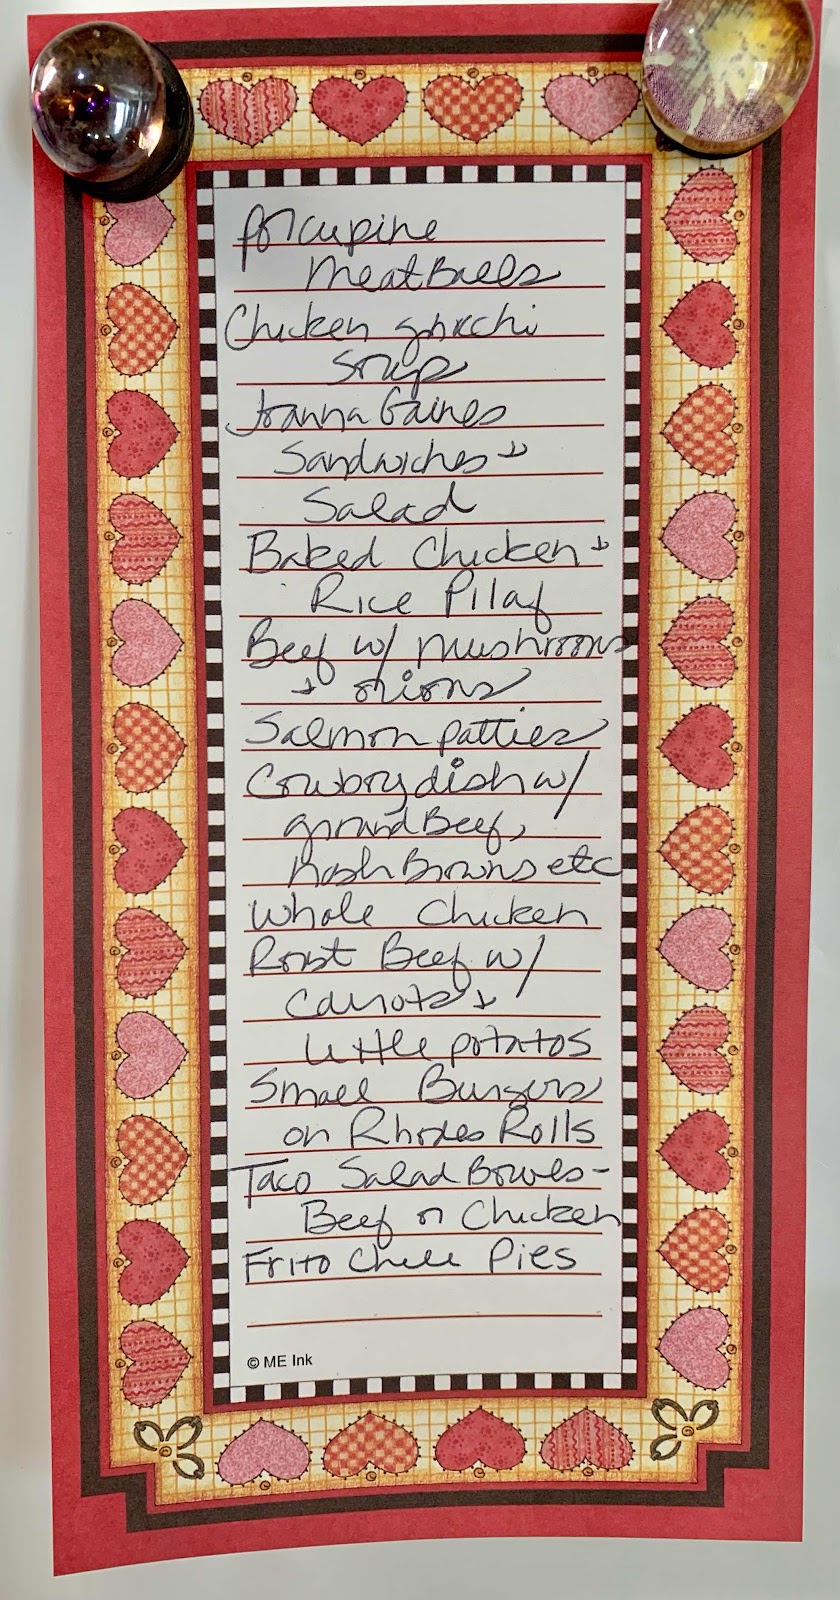 Porcupine
MeatBalls
Chicken gnocchi
Soup
Joanna Gaines
Sandwiches +
Salad
Baked Chicken +
Rice Pilaf
Beef w/ mushrooms
+ onions
Salmon patties
Cowboy dish w/
ground Beef,
hash Browns etc
Whole Chicken
Roast Beef w/
Carrots +
little potatos
Small Burgers
on Rhodes Rolls
Taco Salad Bowls -
Beef or Chicken
Frito Chili Pies
© ME Ink